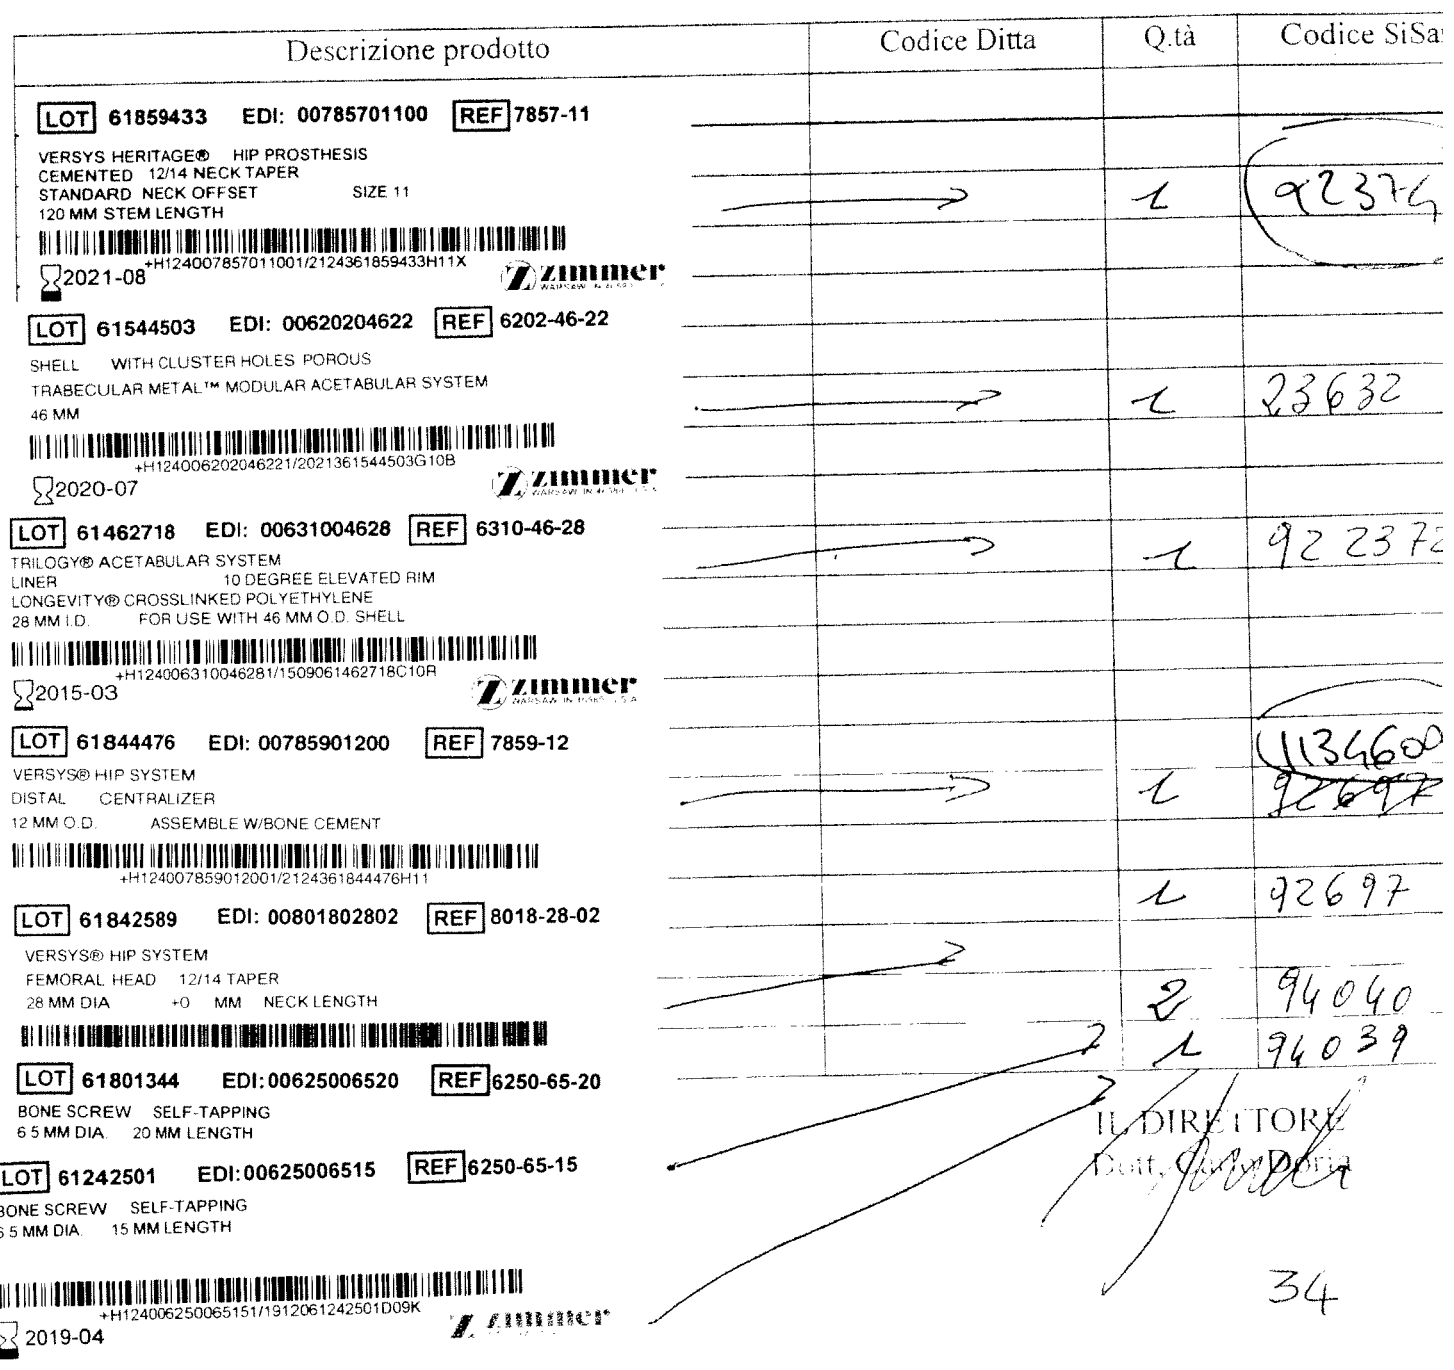 Descrizione prodotto Codice Ditta Q.tà Codice SiSa
LOT 61859433 EDI: 00785701100 REF 7857-11
VERSYS HERITAGE® HIP PROSTHESIS
CEMENTED 12/14 NECK TAPER
STANDARD NECK OFFSET SIZE 11 1 92374
120 MM STEM LENGTH
+H124007857011001/2124361859433H11X
2021-08 zimmer
LOT 61544503 EDI: 00620204622 REF 6202-46-22
SHELL WITH CLUSTER HOLES POROUS
TRABECULAR METAL™ MODULAR ACETABULAR SYSTEM 1 23632
46 MM
+H124006202046221/2021361544503G10B
2020-07 zimmer
LOT 61462718 EDI: 00631004628 REF 6310-46-28
TRILOGY® ACETABULAR SYSTEM 1 922372
LINER 10 DEGREE ELEVATED RIM
LONGEVITY® CROSSLINKED POLYETHYLENE
28 MM I.D. FOR USE WITH 46 MM O.D. SHELL
+H124006310046281/1509061462718C10R
2015-03 zimmer
LOT 61844476 EDI: 00785901200 REF 7859-12 1134600
VERSYS® HIP SYSTEM
DISTAL CENTRALIZER 1 92697
12 MM O.D. ASSEMBLE W/BONE CEMENT
+H124007859012001/2124361844476H11
1 92697
LOT 61842589 EDI: 00801802802 REF 8018-28-02
VERSYS® HIP SYSTEM
FEMORAL HEAD 12/14 TAPER
28 MM DIA +0 MM NECK LENGTH 2 94040
1 94039
LOT 61801344 EDI:00625006520 REF 6250-65-20
BONE SCREW SELF-TAPPING
6.5 MM DIA. 20 MM LENGTH
IL DIRETTORE
Dott. Carlo Doria
LOT 61242501 EDI:00625006515 REF 6250-65-15
BONE SCREW SELF-TAPPING
6.5 MM DIA. 15 MM LENGTH
34
+H124006250065151/1912061242501D09K
2019-04 zimmer